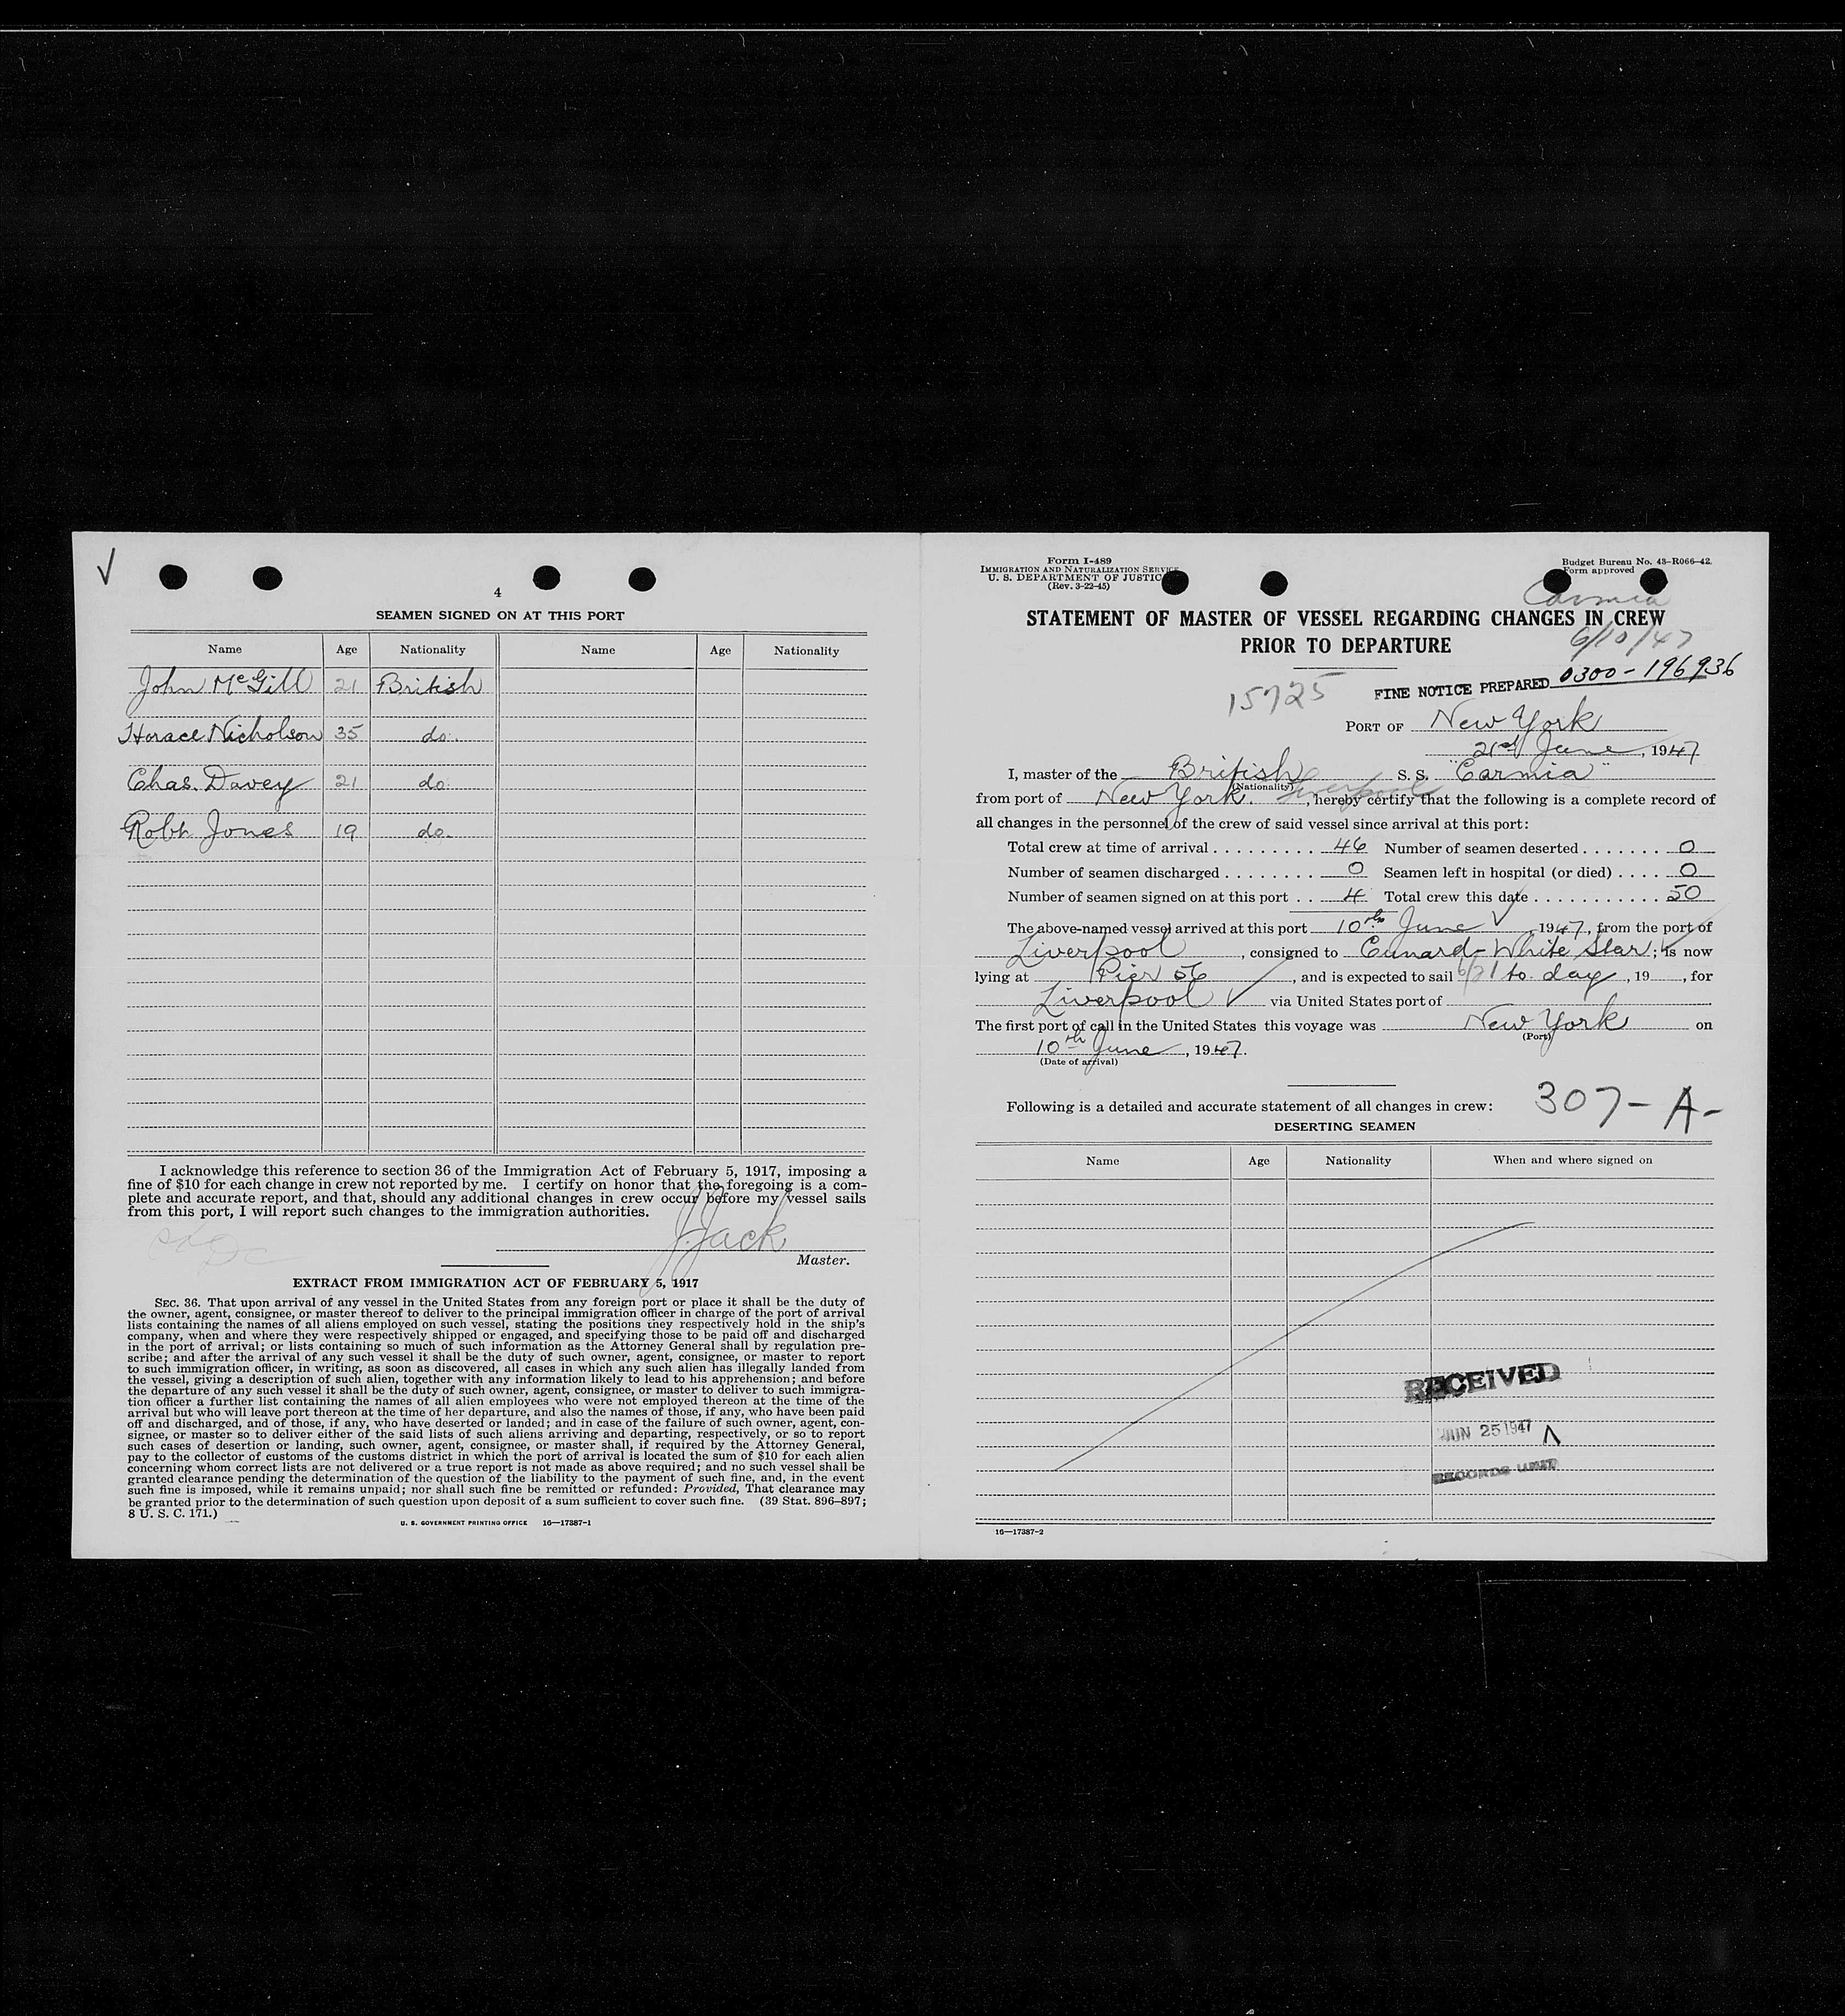 4
SEAMEN SIGNED ON AT THIS PORT
Name Age Nationality Name Age Nationality
John McGill 21 British
Horace Nicholson 35 do.
Chas. Davey 21 do
Robt. Jones 19 do.
I acknowledge this reference to section 36 of the Immigration Act of February 5, 1917, imposing a
fine of $10 for each change in crew not reported by me. I certify on honor that the foregoing is a com-
plete and accurate report, and that, should any additional changes in crew occur before my vessel sails
from this port, I will report such changes to the immigration authorities.
J. Jack
Master.
EXTRACT FROM IMMIGRATION ACT OF FEBRUARY 5, 1917
SEC. 36. That upon arrival of any vessel in the United States from any foreign port or place it shall be the duty of
the owner, agent, consignee, or master thereof to deliver to the principal immigration officer in charge of the port of arrival
lists containing the names of all aliens employed on such vessel, stating the positions they respectively hold in the ship's
company, when and where they were respectively shipped or engaged, and specifying those to be paid off and discharged
in the port of arrival; or lists containing so much of such information as the Attorney General shall by regulation pre-
scribe; and after the arrival of any such vessel it shall be the duty of such owner, agent, consignee, or master to report
to such immigration officer, in writing, as soon as discovered, all cases in which any such alien has illegally landed from
the vessel, giving a description of such alien, together with any information likely to lead to his apprehension; and before
the departure of any such vessel it shall be the duty of such owner, agent, consignee, or master to deliver to such immigra-
tion officer a further list containing the names of all alien employees who were not employed thereon at the time of the
arrival but who will leave port thereon at the time of her departure, and also the names of those, if any, who have been paid
off and discharged, and of those, if any, who have deserted or landed; and in case of the failure of such owner, agent, con-
signee, or master so to deliver either of the said lists of such aliens arriving and departing, respectively, or so to report
such cases of desertion or landing, such owner, agent, consignee, or master shall, if required by the Attorney General,
pay to the collector of customs of the customs district in which the port of arrival is located the sum of $10 for each alien
concerning whom correct lists are not delivered or a true report is not made as above required; and no such vessel shall be
granted clearance pending the determination of the question of the liability to the payment of such fine, and, in the event
such fine is imposed, while it remains unpaid; nor shall such fine be remitted or refunded: Provided, That clearance may
be granted prior to the determination of such question upon deposit of a sum sufficient to cover such fine. (39 Stat. 896–897;
8 U. S. C. 171.)
U. S. GOVERNMENT PRINTING OFFICE 16—17387-1
Form I-489
IMMIGRATION AND NATURALIZATION SERVICE
U. S. DEPARTMENT OF JUSTIC
(Rev. 3-22-45)
Budget Bureau No. 43-R066-42.
Form approved
Carmia
STATEMENT OF MASTER OF VESSEL REGARDING CHANGES IN CREW
PRIOR TO DEPARTURE
6/10/47
15725
FINE NOTICE PREPARED 0300-196936
PORT OF New York
21st June, 1947
I, master of the British S. S. "Carmia"
(Nationality)
from port of New York. Liverpool, hereby certify that the following is a complete record of
all changes in the personnel of the crew of said vessel since arrival at this port:
Total crew at time of arrival . . . . . . . . . . 46 Number of seamen deserted . . . . . . . 0
Number of seamen discharged . . . . . . . . 0 Seamen left in hospital (or died) . . . . 0
Number of seamen signed on at this port . . 4 Total crew this date . . . . . . . . . . . 50
The above-named vessel arrived at this port 10th June, 1947, from the port of
Liverpool, consigned to Cunard-White Star; is now
lying at Pier 56, and is expected to sail 6/21 to day, 19 , for
Liverpool via United States port of
The first port of call in the United States this voyage was New York on
(Port)
10th June, 1947.
(Date of arrival)
307-A-
Following is a detailed and accurate statement of all changes in crew:
DESERTING SEAMEN
Name Age Nationality When and where signed on
RECEIVED
JUN 25 1947
RECORDS UNIT
16—17387-2